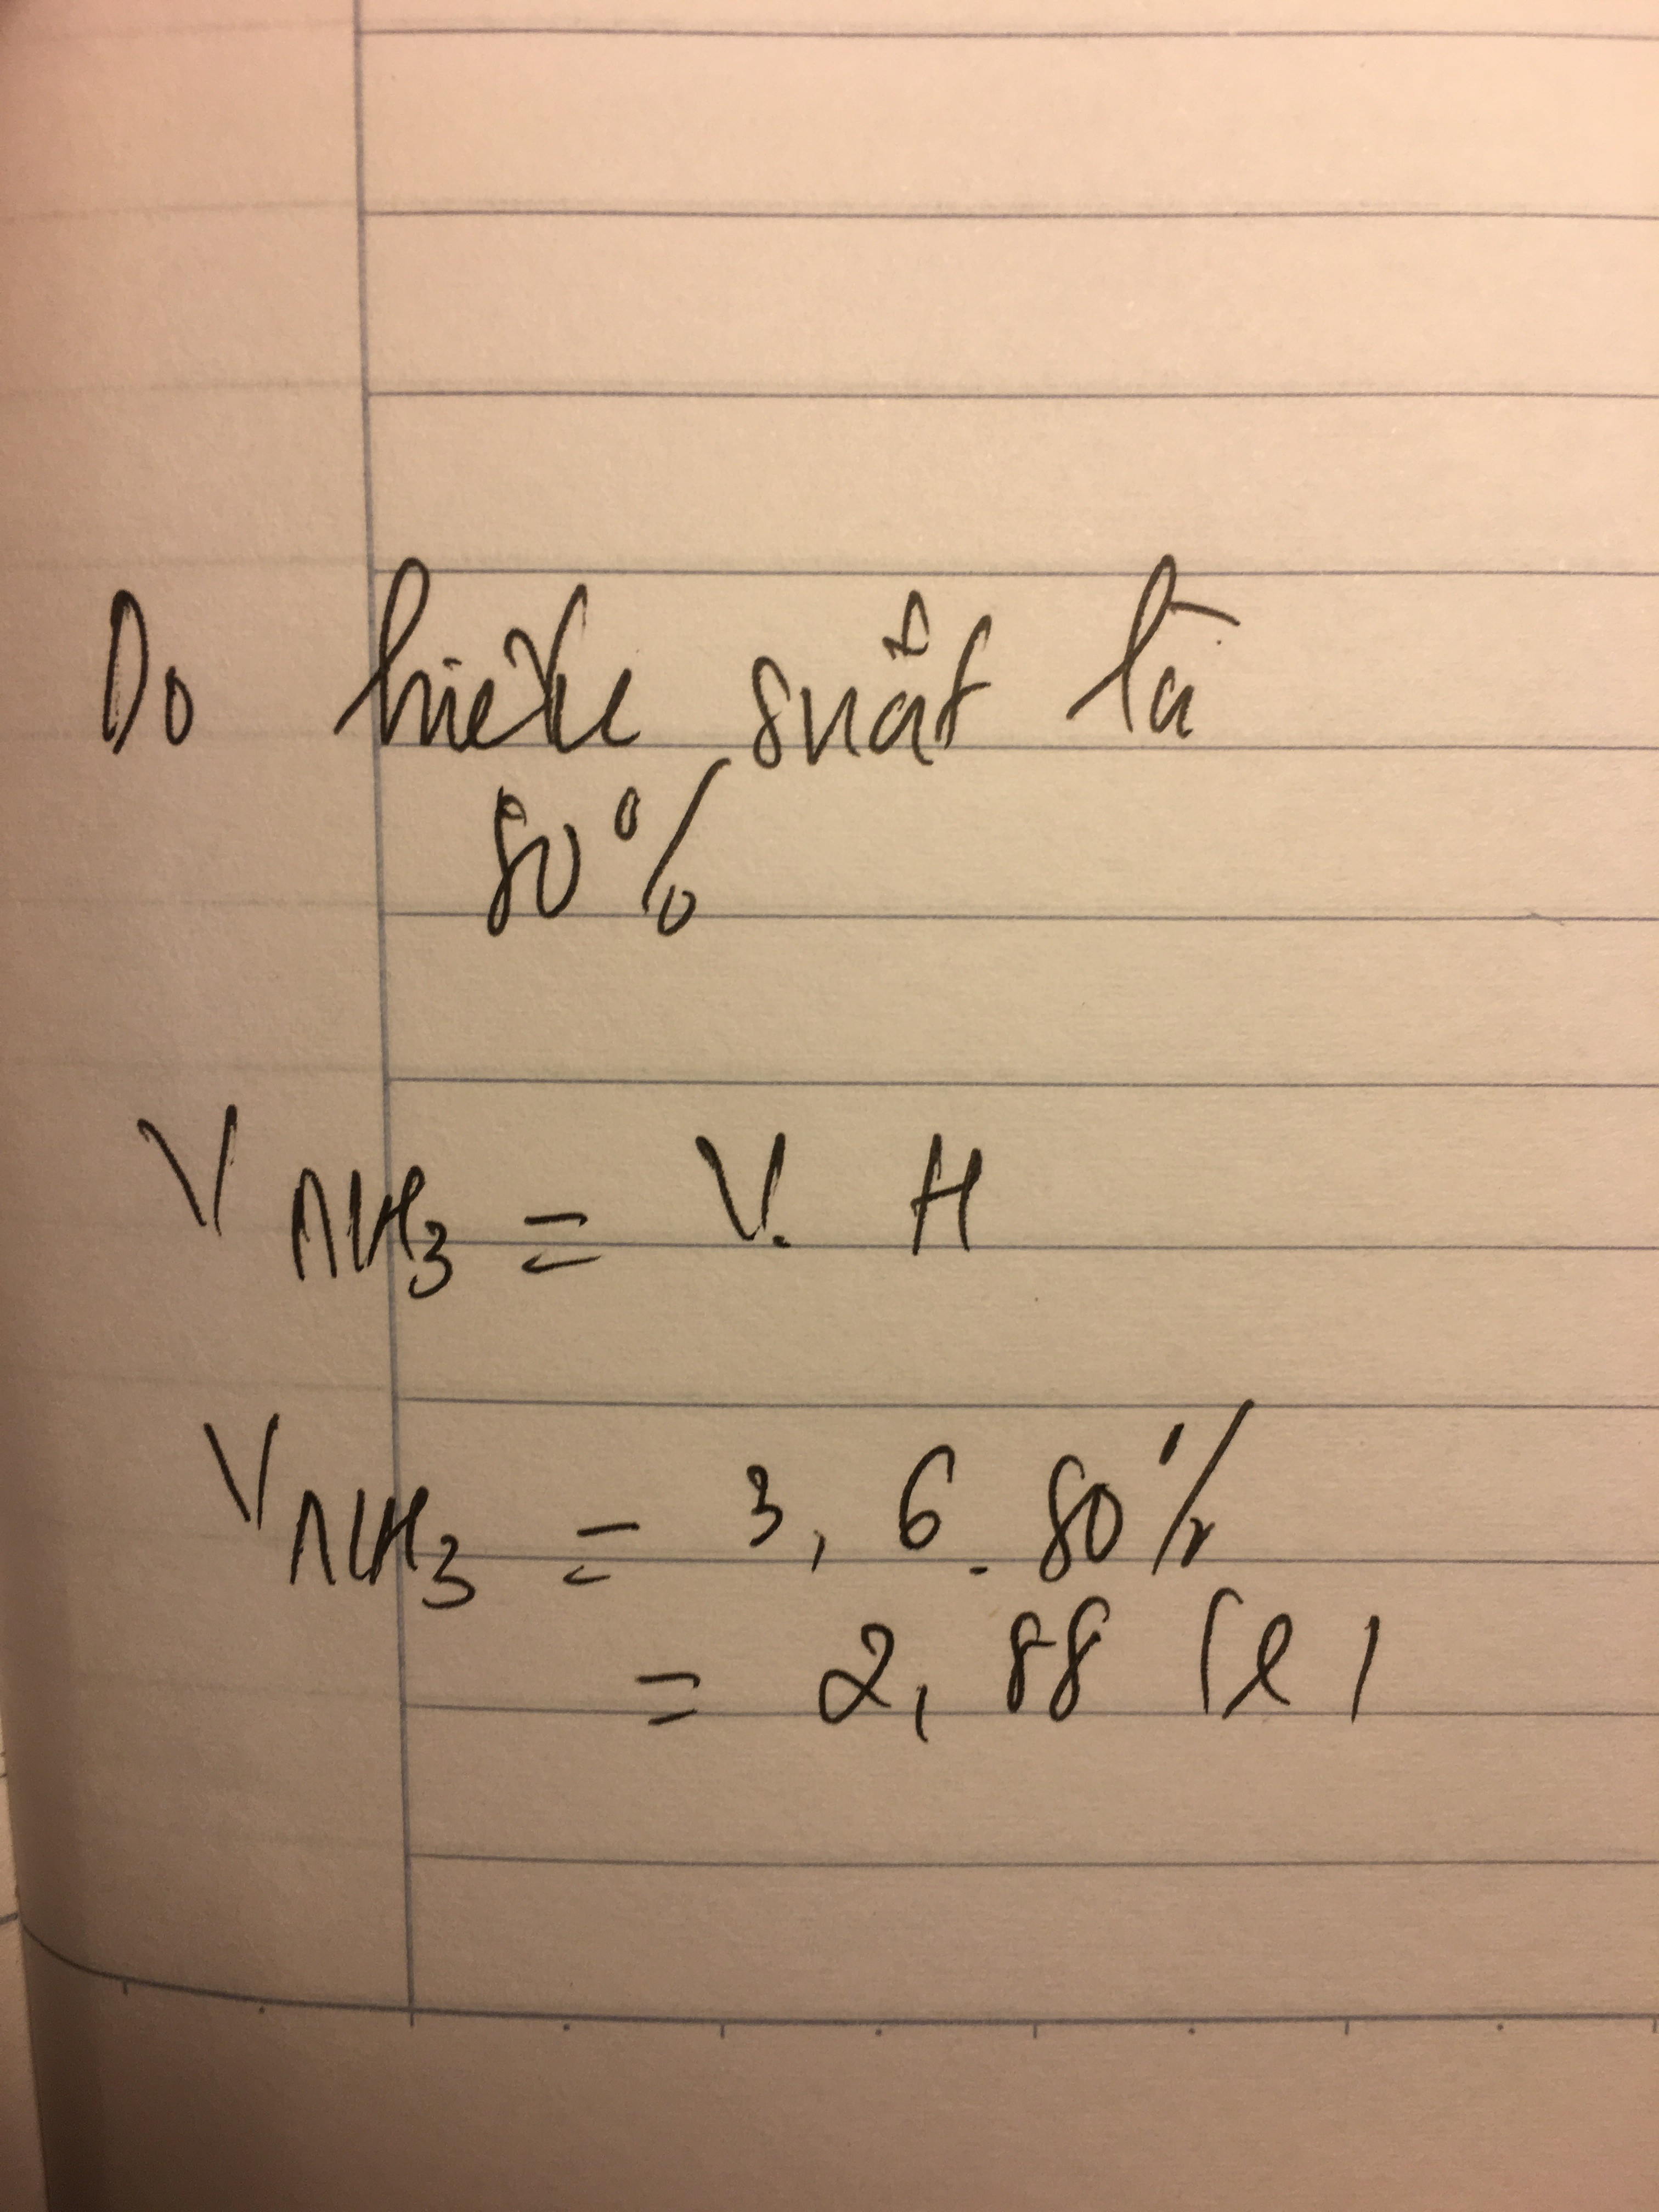 Do hiệu suất là
80%
V NH3 = V. H
V NH3 = 3,6. 80%
= 2,88 (l)